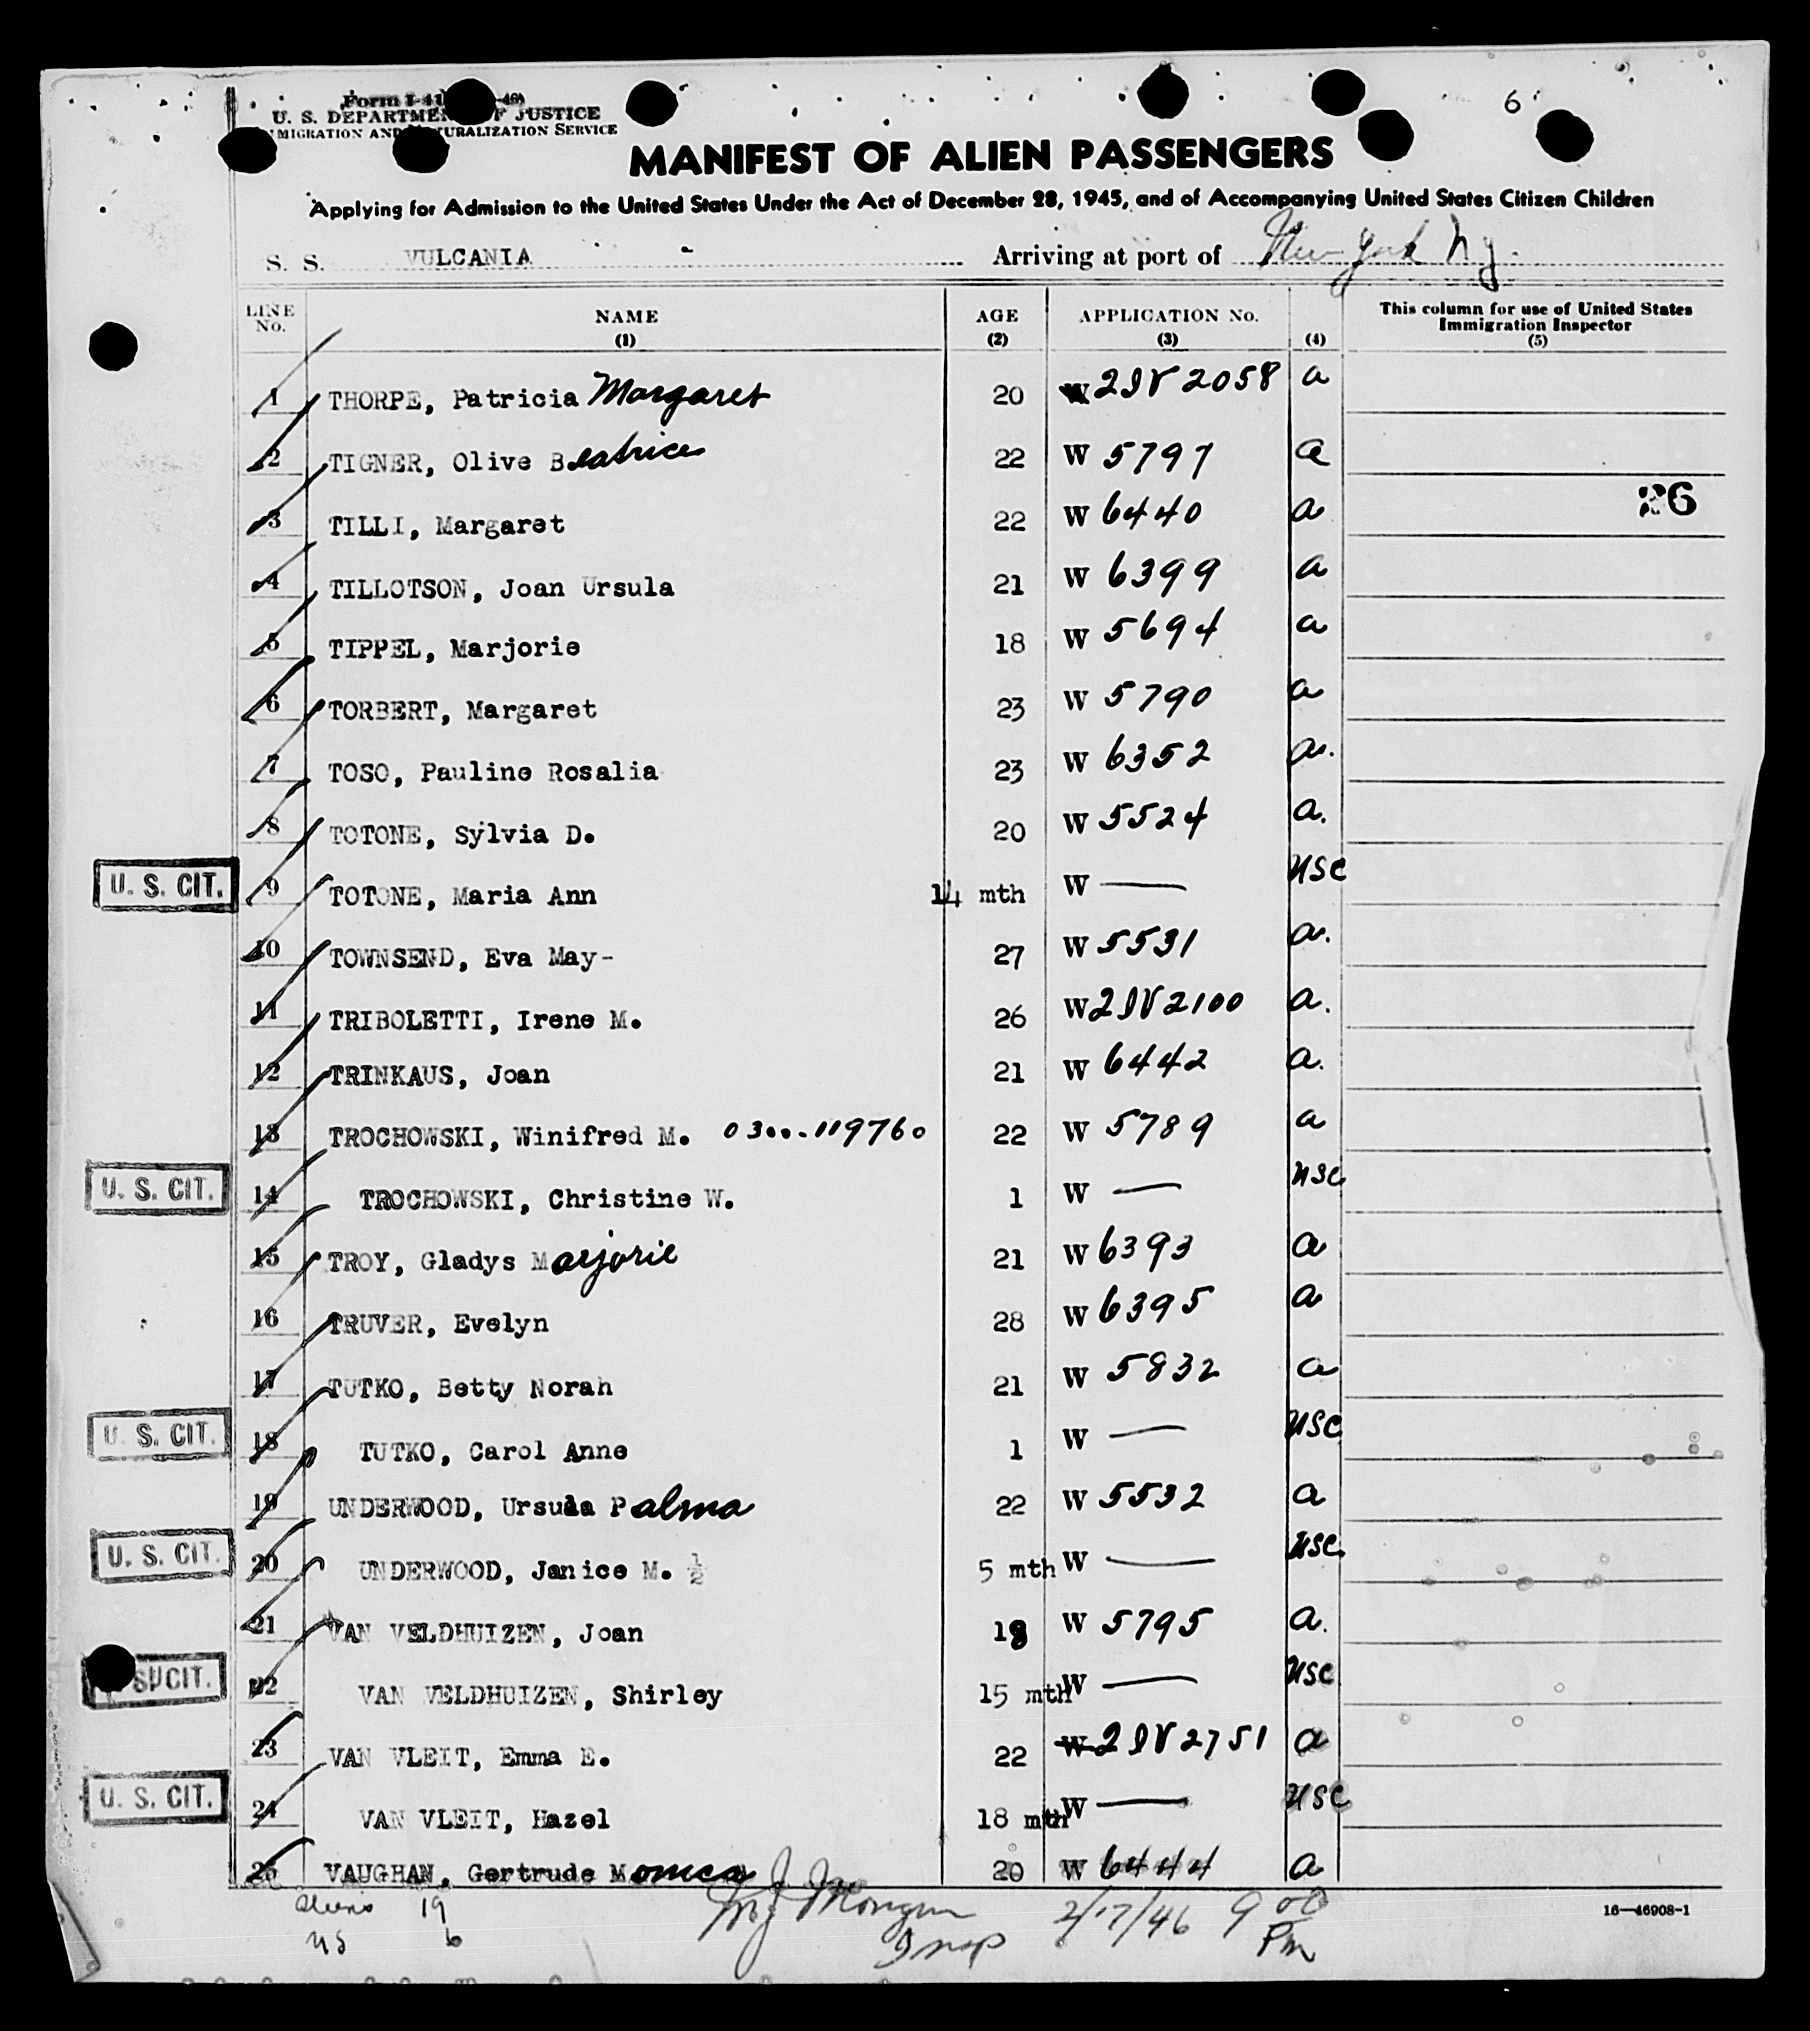 Form I-41 -46)
U. S. DEPARTMENT OF JUSTICE
IMMIGRATION AND NATURALIZATION SERVICE
6
MANIFEST OF ALIEN PASSENGERS
Applying for Admission to the United States Under the Act of December 28, 1945, and of Accompanying United States Citizen Children
S. S. VULCANIA Arriving at port of New York N Y.
LINE No. NAME (1) AGE (2) APPLICATION No. (3) (4) This column for use of United States Immigration Inspector (5)
1 THORPE, Patricia Margaret 20 W 2IV 2058 a
2 TIGNER, Olive Beatrice 22 W 5797 a
3 TILLI, Margaret 22 W 6440 a 26
4 TILLOTSON, Joan Ursula 21 W 6399 a
5 TIPPEL, Marjorie 18 W 5694 a
6 TORBERT, Margaret 23 W 5790 a
7 TOSO, Pauline Rosalia 23 W 6352 a.
8 TOTONE, Sylvia D. 20 W 5524 a.
U. S. CIT. 9 TOTONE, Maria Ann 14 mth W — USC
10 TOWNSEND, Eva May- 27 W 5531 a.
11 TRIBOLETTI, Irene M. 26 W 2IV 2100 a.
12 TRINKAUS, Joan 21 W 6442 a.
13 TROCHOWSKI, Winifred M. 03...119760 22 W 5789 a
U. S. CIT. 14 TROCHOWSKI, Christine W. 1 W — USC
15 TROY, Gladys Marjorie 21 W 6393 a
16 TRUVER, Evelyn 28 W 6395 a
17 TUTKO, Betty Norah 21 W 5832 a
U. S. CIT. 18 TUTKO, Carol Anne 1 W — USC
19 UNDERWOOD, Ursula Palma 22 W 5532 a
U. S. CIT. 20 UNDERWOOD, Janice M. ½ 5 mth W — USC.
21 VAN VELDHUIZEN, Joan 18 W 5795 a.
S. CIT. 22 VAN VELDHUIZEN, Shirley 15 mth W — USC
23 VAN VLEIT, Emma E. 22 W 2IV 2751 a
U. S. CIT. 24 VAN VLEIT, Hazel 18 mth W — USC
25 VAUGHAN, Gertrude Monica 20 W 6444 a
aliens 19
US 6
Insp
2/17/46 9 00 Pm
16—46908-1